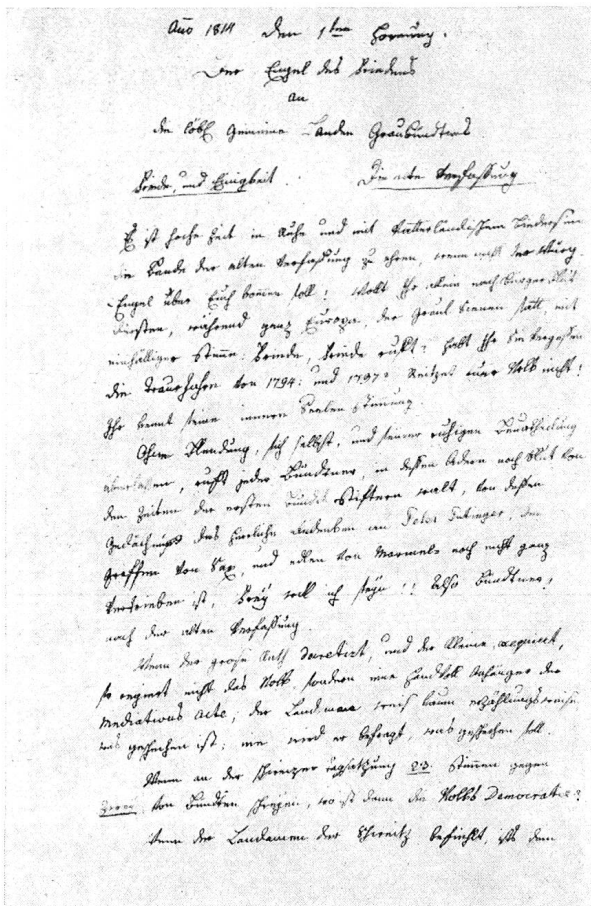 Año 1814 den 1ten Hornung.
Der Engel des Friedens
an
die löbl Gemeine Landen Graubündtens
Friede, und Einigkeit . Die alte Verfassung
Es ist hoche Zeit in Ruhe und mit Vatterländischem Biedersinn
die Bande der alten Verfassung zu ehren, wenn nicht der Würg-
Engel über Euch kommen soll! Wollt Ihr allein nach Bürger Blut
dürsten, während ganz Europa, der Greul Scenen statt, mit
einhälliger Stimme: Friede, Friede ruft? Habt Ihr Sie vergessen
die Trauer Jahre von 1794: und 1797? Reitzet euer Volk nicht!
Ihr kennt seine innere Seelen Stimmung.
Ohne Blendung, sich selbst, und seiner ruhigen Beurtheilung
überlassen, ruft jeder Bündtner, in dessen Adern noch Blut von
den Zeiten der ersten Bundts Stiftern walt, von dessen
Gedächtniß das herrliche Andenken an Peter Pultinger, den
Graffen von Sax, und edlen von Marmels noch nicht ganz
vertrieben ist, Frey will ich seyn!! Also Bündtner,
nach der alten Verfassung.
Wenn der große Rath decretirt, und der kleine exequiert,
so regiert nicht das Volk, sondern eine Handvoll Anhänger der
Mediations Acte; der Landmann weis kaum erzählungsweise
was geschechen ist; nie wird er befragt, was geschechen soll.
Wenn an der Schweizer Tagsatzung 23. Stimmen gegen
zwey von Bündten schreyen, wo ist dann die Volks Democratie?
Wenn der Landamen der Schweitz befiehlt, ists dem